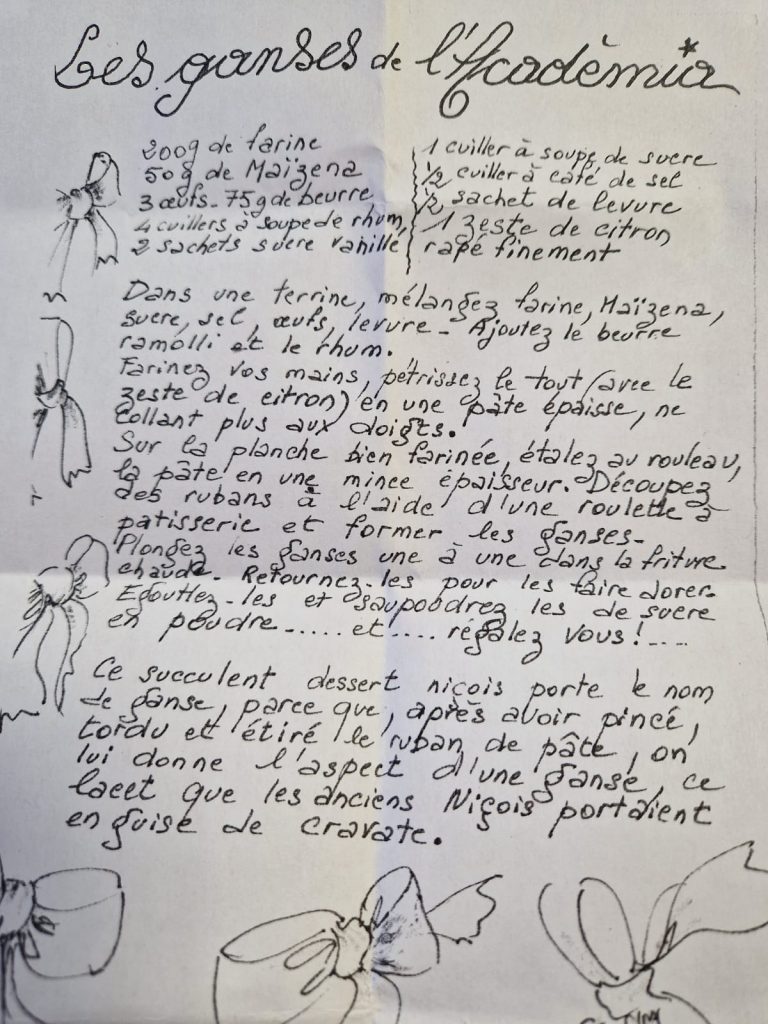 Les ganses de l'Acadèmia*
200g de farine
50g de Maïzena
3 œufs - 75g de beurre,
4 cuillers à soupe de rhum,
2 sachets sucre vanillé
1 cuiller à soupe de sucre
1/2 cuiller à café de sel
1/2 sachet de levure
1 zeste de citron
rapé finement
Dans une terrine, mélangez farine, Maïzena,
sucre, sel, œufs, levure - Ajoutez le beurre
ramolli et le rhum.
Farinez vos mains, pétrissez le tout (avec le
zeste de citron) en une pâte épaisse, ne
collant plus aux doigts.
Sur la planche bien farinée, étalez au rouleau,
la pâte en une mince épaisseur. Découpez
des rubans à l'aide d'une roulette à
patisserie et former les ganses -
Plongez les ganses une à une dans la friture
chaude - Retournez-les pour les faire dorer.
Egouttez-les et saupoudrez les de sucre
en poudre ..... et .... régalez vous! ....
Ce succulent dessert niçois porte le nom
de ganse, parce que, après avoir pincé,
tordu et étiré le ruban de pâte, on
lui donne l'aspect d'une ganse, ce
lacet que les anciens Niçois portaient
en guise de cravate.